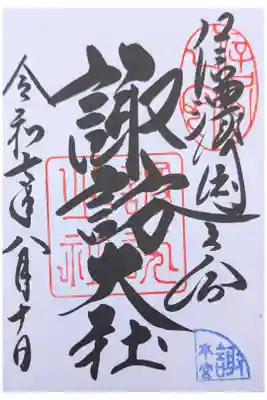 信濃國一之宮
諏訪大社
令和七年八月十日
本宮